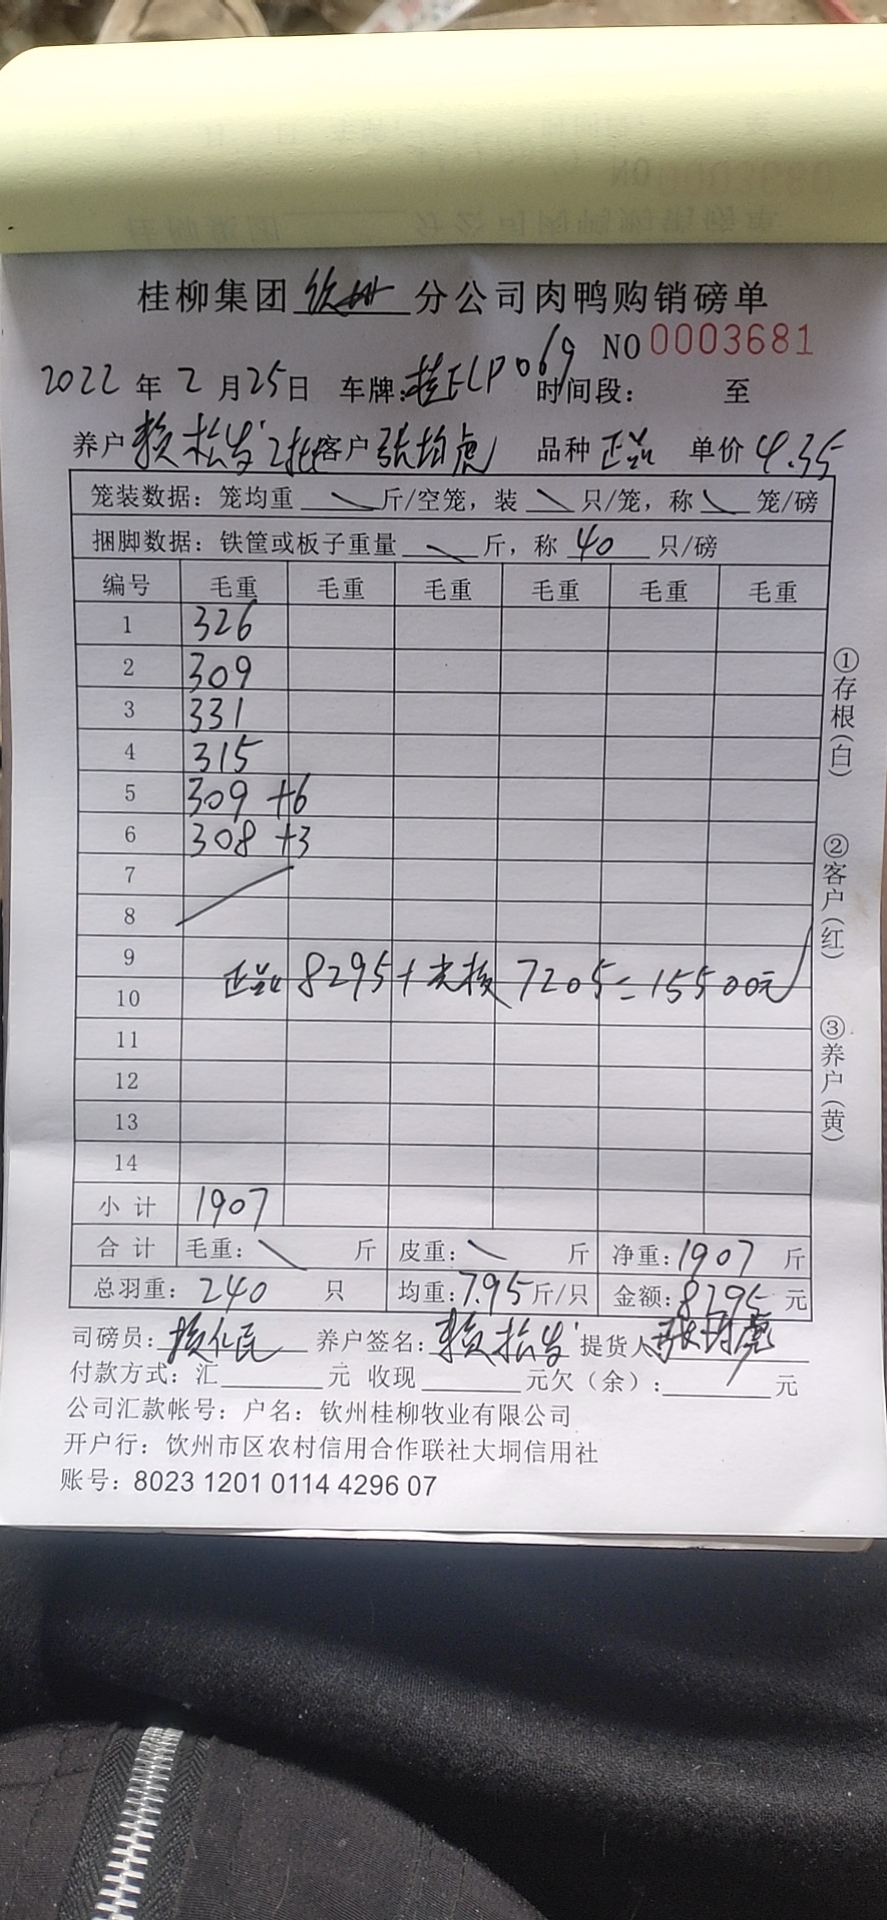 桂柳集团 钦州 分公司肉鸭购销磅单
NO 0003681
2022 年 2 月 25 日 车牌:桂ELP069 时间段: 至
养户 赖松发 2批 客户 张均虎 品种 正品 单价 4.35
笼装数据:笼均重 \ 斤/空笼,装 \ 只/笼,称 \ 笼/磅
捆脚数据:铁筐或板子重量 \ 斤,称 40 只/磅
编号 毛重 毛重 毛重 毛重 毛重 毛重
1 326
2 309
3 331
4 315
5 309 +6
6 308 +3
7
8
9
正品 8295 + 7205 = 15500元
10
11
12
13
14
小计 1907
合计 毛重: \ 斤 皮重: \ 斤 净重:1907 斤
总羽重:240 只 均重:7.95 斤/只 金额:8295 元
司磅员:赖仁民 养户签名:赖松发 提货人 张均虎
付款方式:汇 元 收现 元欠(余): 元
公司汇款帐号:户名:钦州桂柳牧业有限公司
开户行:饮州市区农村信用合作联社大垌信用社
账号:8023 1201 0114 4296 07
①存根(白)
②客户(红)
③养户(黄)